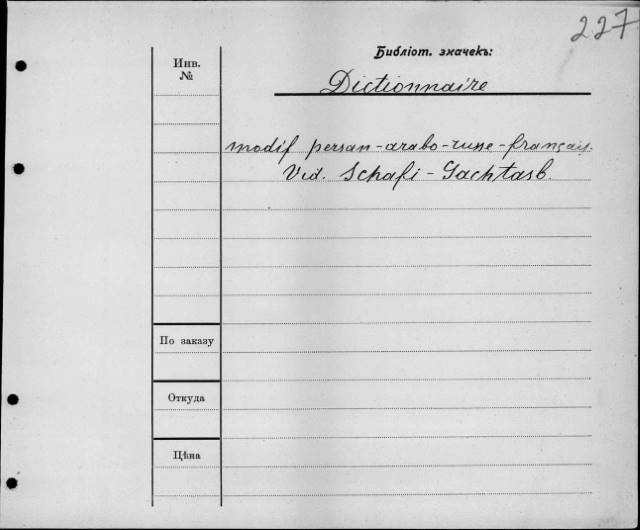 227
Библіот. значекъ:
Инв.
№
Dictionnaire
modif persan-arabo-russe-français.
Vid. Schafi - Gachtasb.
По заказу
Откуда
Цѣна